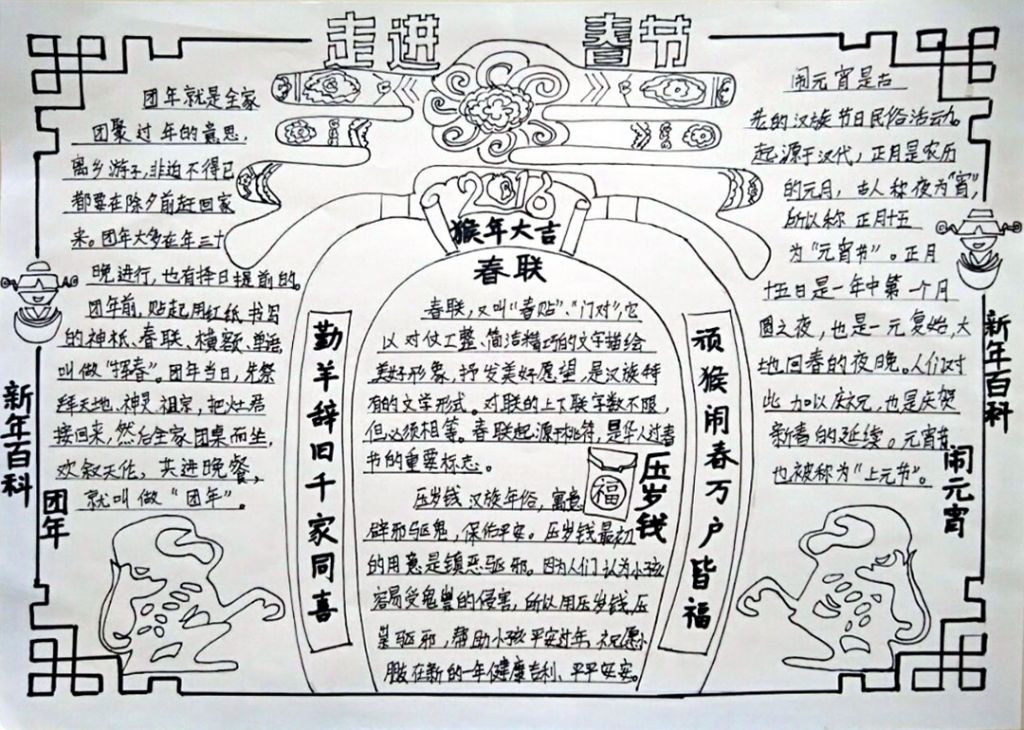 走进 春节
团年就是全家
团聚过年的意思，
离乡游子，非迫不得已
都要在除夕前赶回家
来。团年大多在年三十
晚进行，也有择日提前的。
团年前，贴起用红纸书写
的神祇、春联、横额、
叫做“挥春”。团年当日，先祭
拜天地、神灵、祖宗，把灶君
接回来，然后全家团桌而坐，
欢叙天伦，共进晚餐，
就叫做“团年”。
新年百科
团年
2016
猴年大吉
春联
勤羊辞旧千家同喜
春联，又叫“春贴”、“门对”，它
以对仗工整、简洁精巧的文字描绘
美好形象，抒发美好愿望，是汉族特
有的文学形式。对联的上下联字数不限，
但必须相等。春联起源于桃符，是华人过春
节的重要标志。
福
压岁钱
压岁钱，汉族年俗，寓意
辟邪驱鬼，保佑平安。压岁钱最初
的用意是镇恶驱邪。因为人们认为小孩
容易受鬼祟的侵害，所以用压岁钱压
祟驱邪，帮助小孩平安过年，祝愿小
朋友在新的一年健康吉利、平平安安。
顽猴闹春万户皆福
闹元宵是古
老的汉族节日民俗活动。
起源于汉代，正月是农历
的元月，古人称夜为“宵”，
所以称正月十五
为“元宵节”。正月
十五日是一年中第一个月
圆之夜，也是一元复始，大
地回春的夜晚。人们对
此加以庆祝，也是庆贺
新春的延续。元宵节
也被称为“上元节”。
新年百科
闹元宵